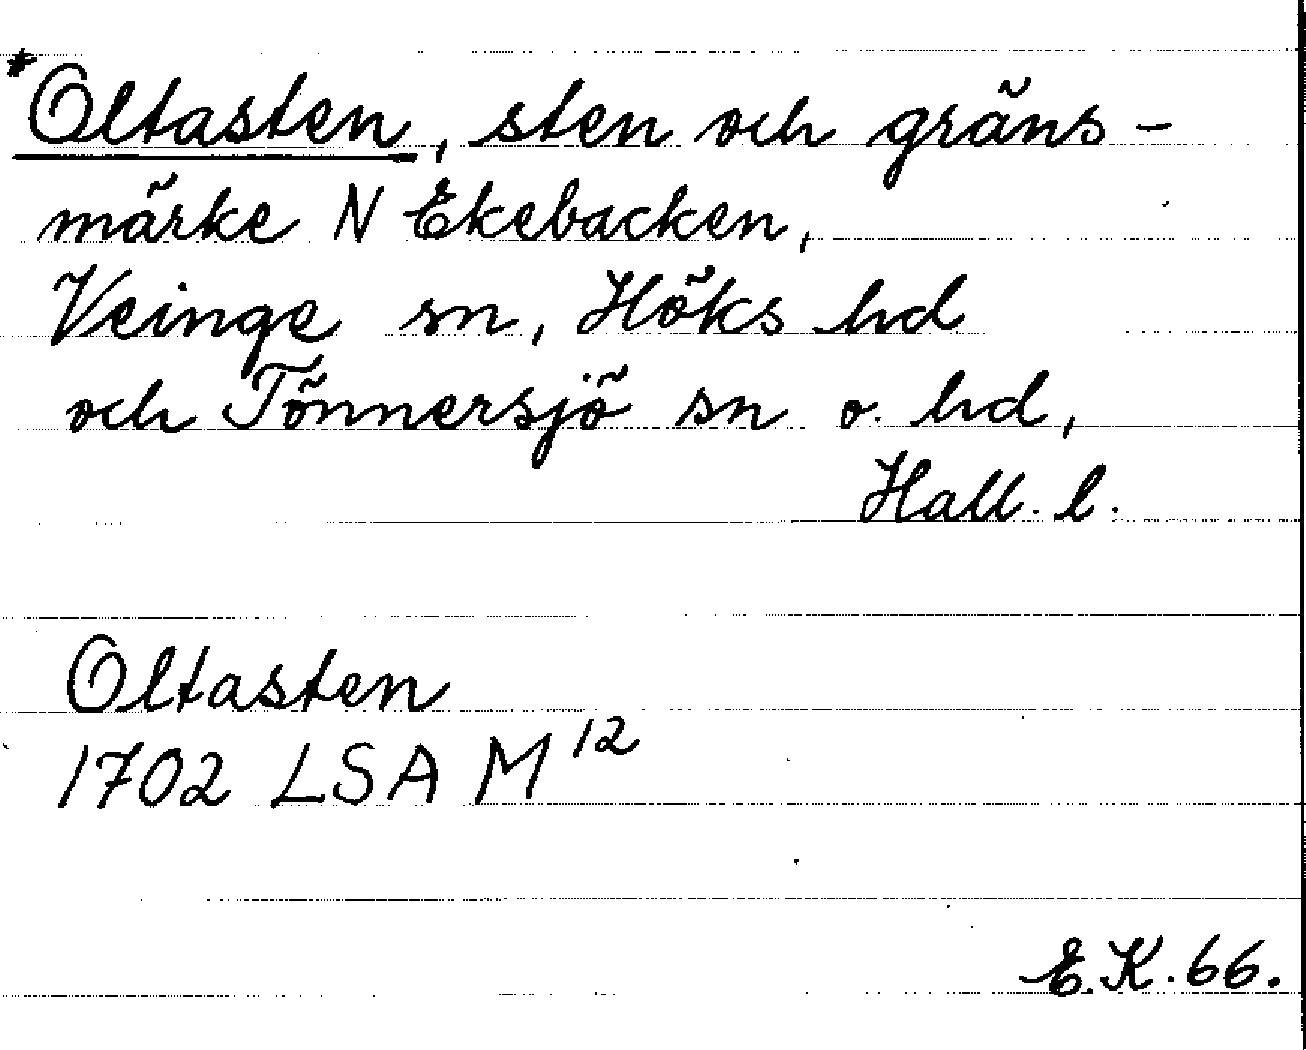 *Oltasten, sten och gräns-
märke N Ekebacken,
Veinge sn, Höks hd
och Tönnersjö sn o. hd,
Hall. l.
Oltasten
1702 LSA M¹²
E.K. 66.